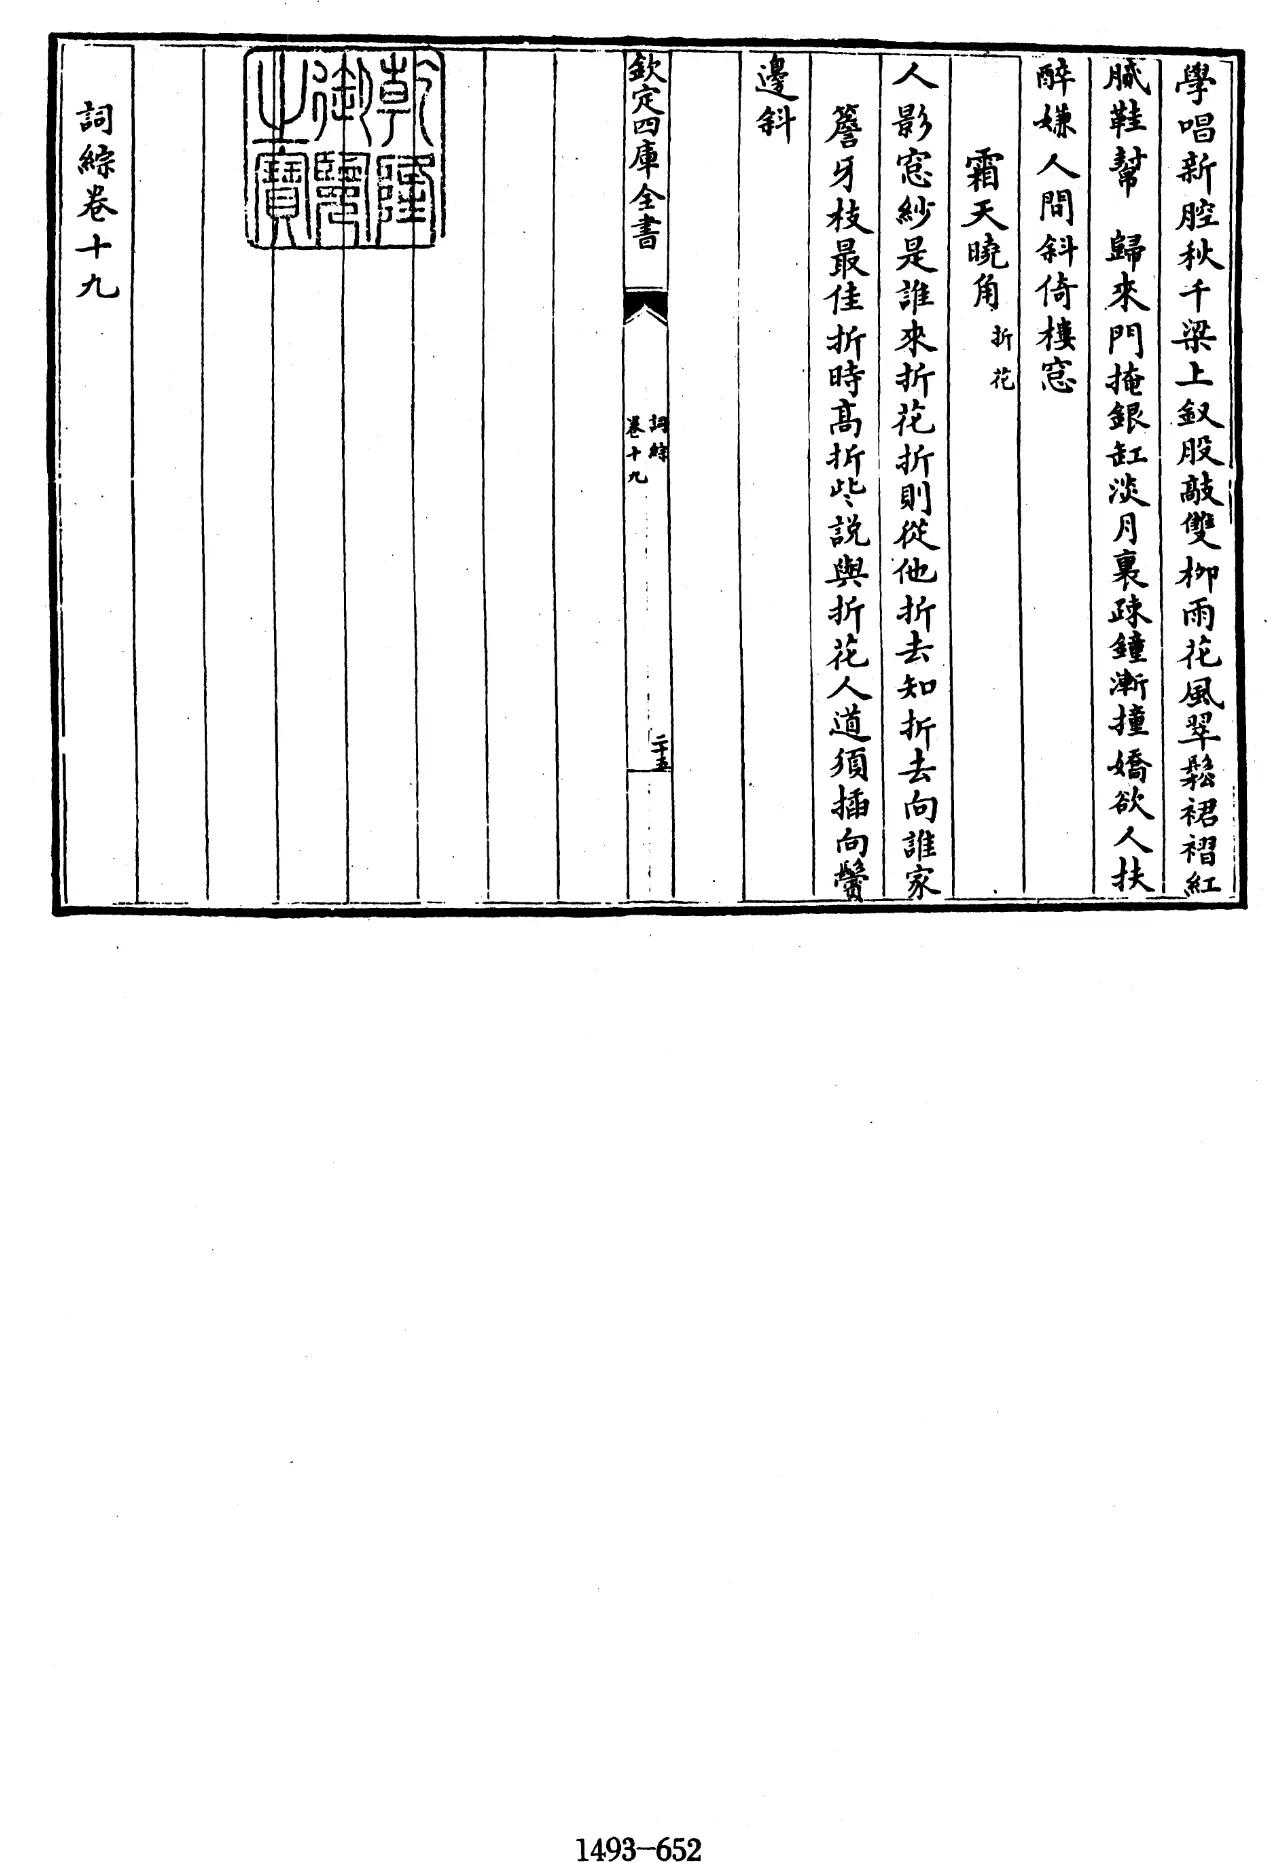 學唱新腔秋千梁上釵股敲雙柳雨花風翠鬆裙褶紅
膩鞋幫　歸來門掩銀缸淡月裏疎鐘漸撞嬌欲人扶
醉嫌人間斜倚樓窓
霜天曉角折花
人影窓紗是誰來折花折則從他折去知折去向誰家
簷牙枝最佳折時高折些說與折花人道須插向鬢
邊斜
欽定四庫全書
詞綜
卷十九
二十五
乾隆
御覽
之寶
詞綜卷十九
1493-652